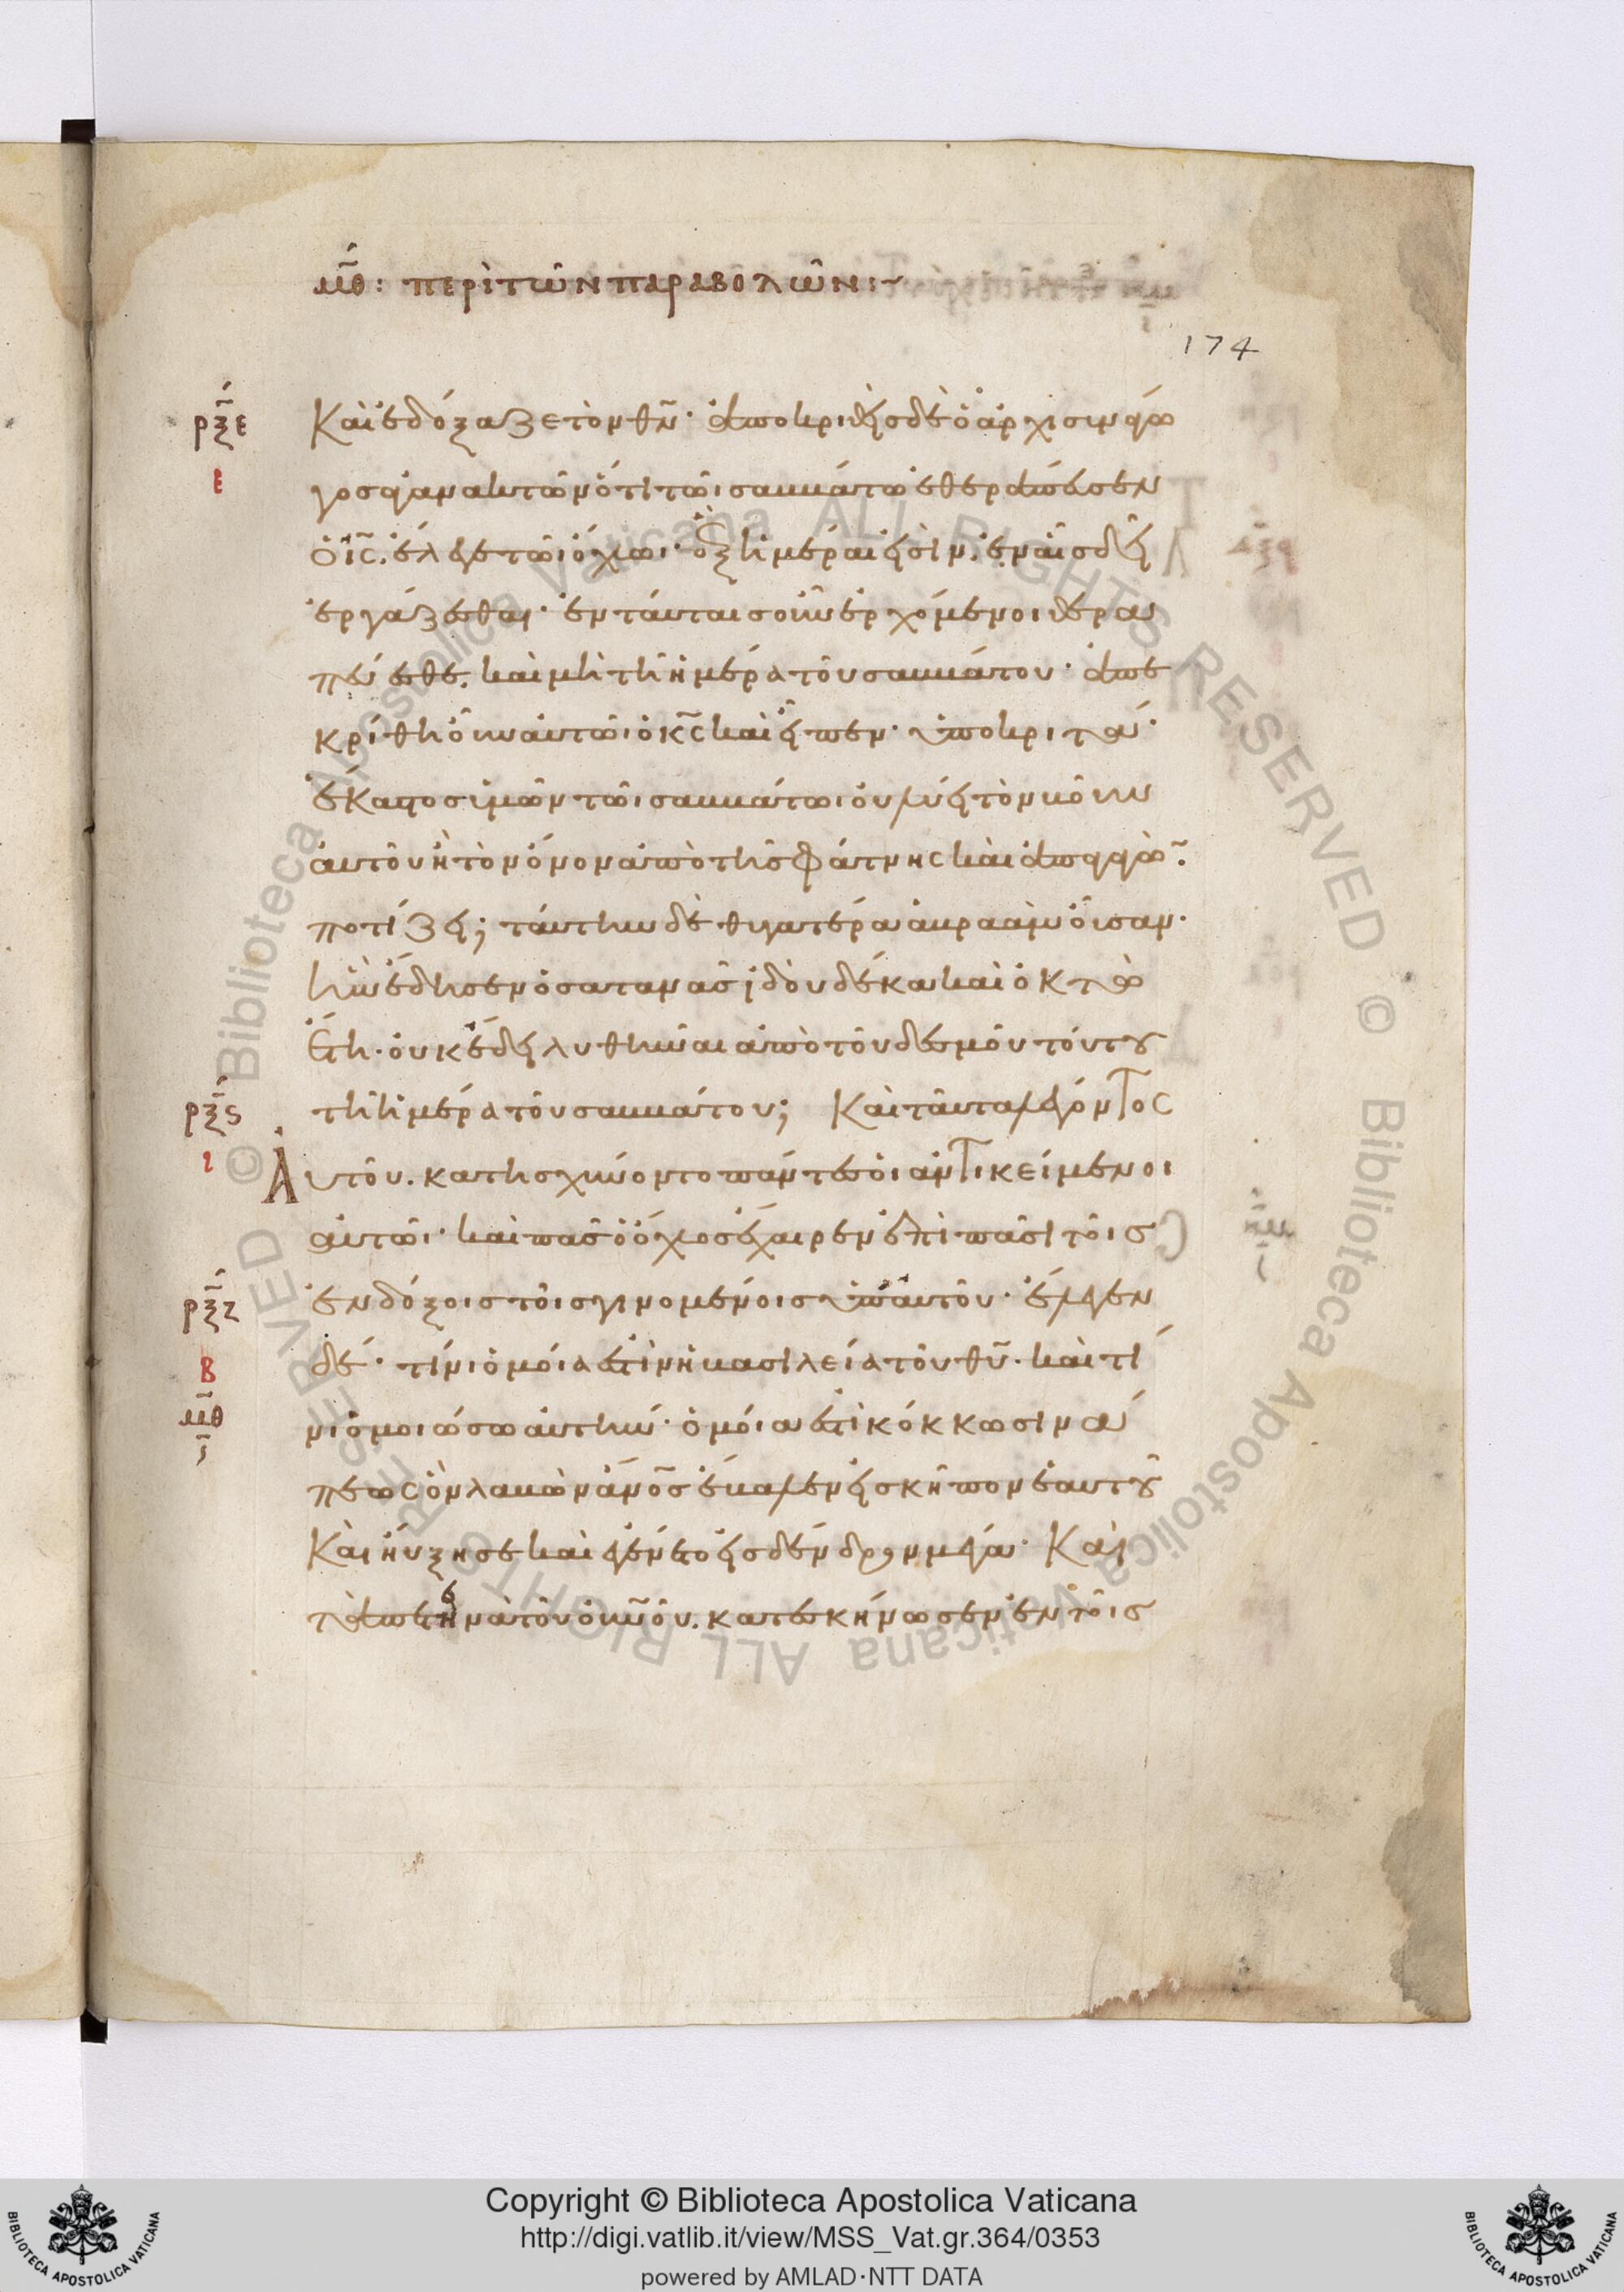 μ̅θ̅: περὶ τῶν παραβολῶν:~
174
ρξε
Καὶ ἐδόξαζε τὸν θ̅ν̅· ἀποκριθεὶς δὲ ὁ ἀρχισυναγω
ε
γος ἀγανακτῶν ὅτι τῶι σαββάτω ἐθεράπευσεν
ὁ ι̅ς̅. ἔλεγε τῶι ὄχλωι· ἓξ ἡμέραι εἰσὶν. ἐν αἷς δεῖ
ἐργάζεσθαι· ἐν ταύταις οὖν ἐρχόμενοι θερα
πεύεσθε. καὶ μὴ τῆ ἡμέρα τοῦ σαββάτου· ἀπε
κρίθη οὖν αὐτῶι ὁ κ̅ς̅ καὶ εἶπεν· ὑποκριταί·
ἕκαστος ὑμῶν τῶι σαββάτωι οὐ λύει τὸν βοῦν
αὐτοῦ ἢ τὸν ὄνον ἀπὸ τῆς φάτνης καὶ ἀπαγαγὼ̅·
ποτίζει; ταύτην δὲ θυγατέρα ἀβραὰμ οὖσαν·
ἣν ἔδησεν ὁ σατανᾶς ἰδοὺ δέκα καὶ ὀκτὼ
ἔτη· οὐκ ἔδει λυθῆναι ἀπὸ τοῦ δεσμοῦ τούτου
ρξς
τῆ ἡμέρα τοῦ σαββάτου; Καὶ ταῦτα λέγοντος
ι
Αὐτοῦ. κατησχύνοντο πάντες οἱ ἀντικείμενοι
αὐτῶι· καὶ πᾶς ὁ ὄχλος ἔχαιρεν ἐπὶ πᾶσι τοῖς
ρξζ
ἐνδόξοις τοῖς γινομένοις ὑπ' αὐτοῦ· ἔλεγεν
β
δέ· τίνι ὁμοία ἐστὶν ἡ βασιλεία τοῦ θ̅υ̅. καὶ τί
μ̅θ̅
νι ὁμοιώσω αὐτήν· ὁμοία ἐστὶ κόκκω σινά
ι
πεως ὃν λαβὼν ἄν̅ο̅ς̅ ἔβαλεν εἰς κῆπον ἑαυτοῦ
Καὶ ηὔξησε καὶ ἐγένετο εἰς δένδρον μέγα· Καὶ
τὰ πετεινὰ τοῦ ο̅υ̅ν̅οῦ. κατεσκήνωσεν ἐν τοῖς
Copyright © Biblioteca Apostolica Vaticana
http://digi.vatlib.it/view/MSS_Vat.gr.364/0353
powered by AMLAD·NTT DATA